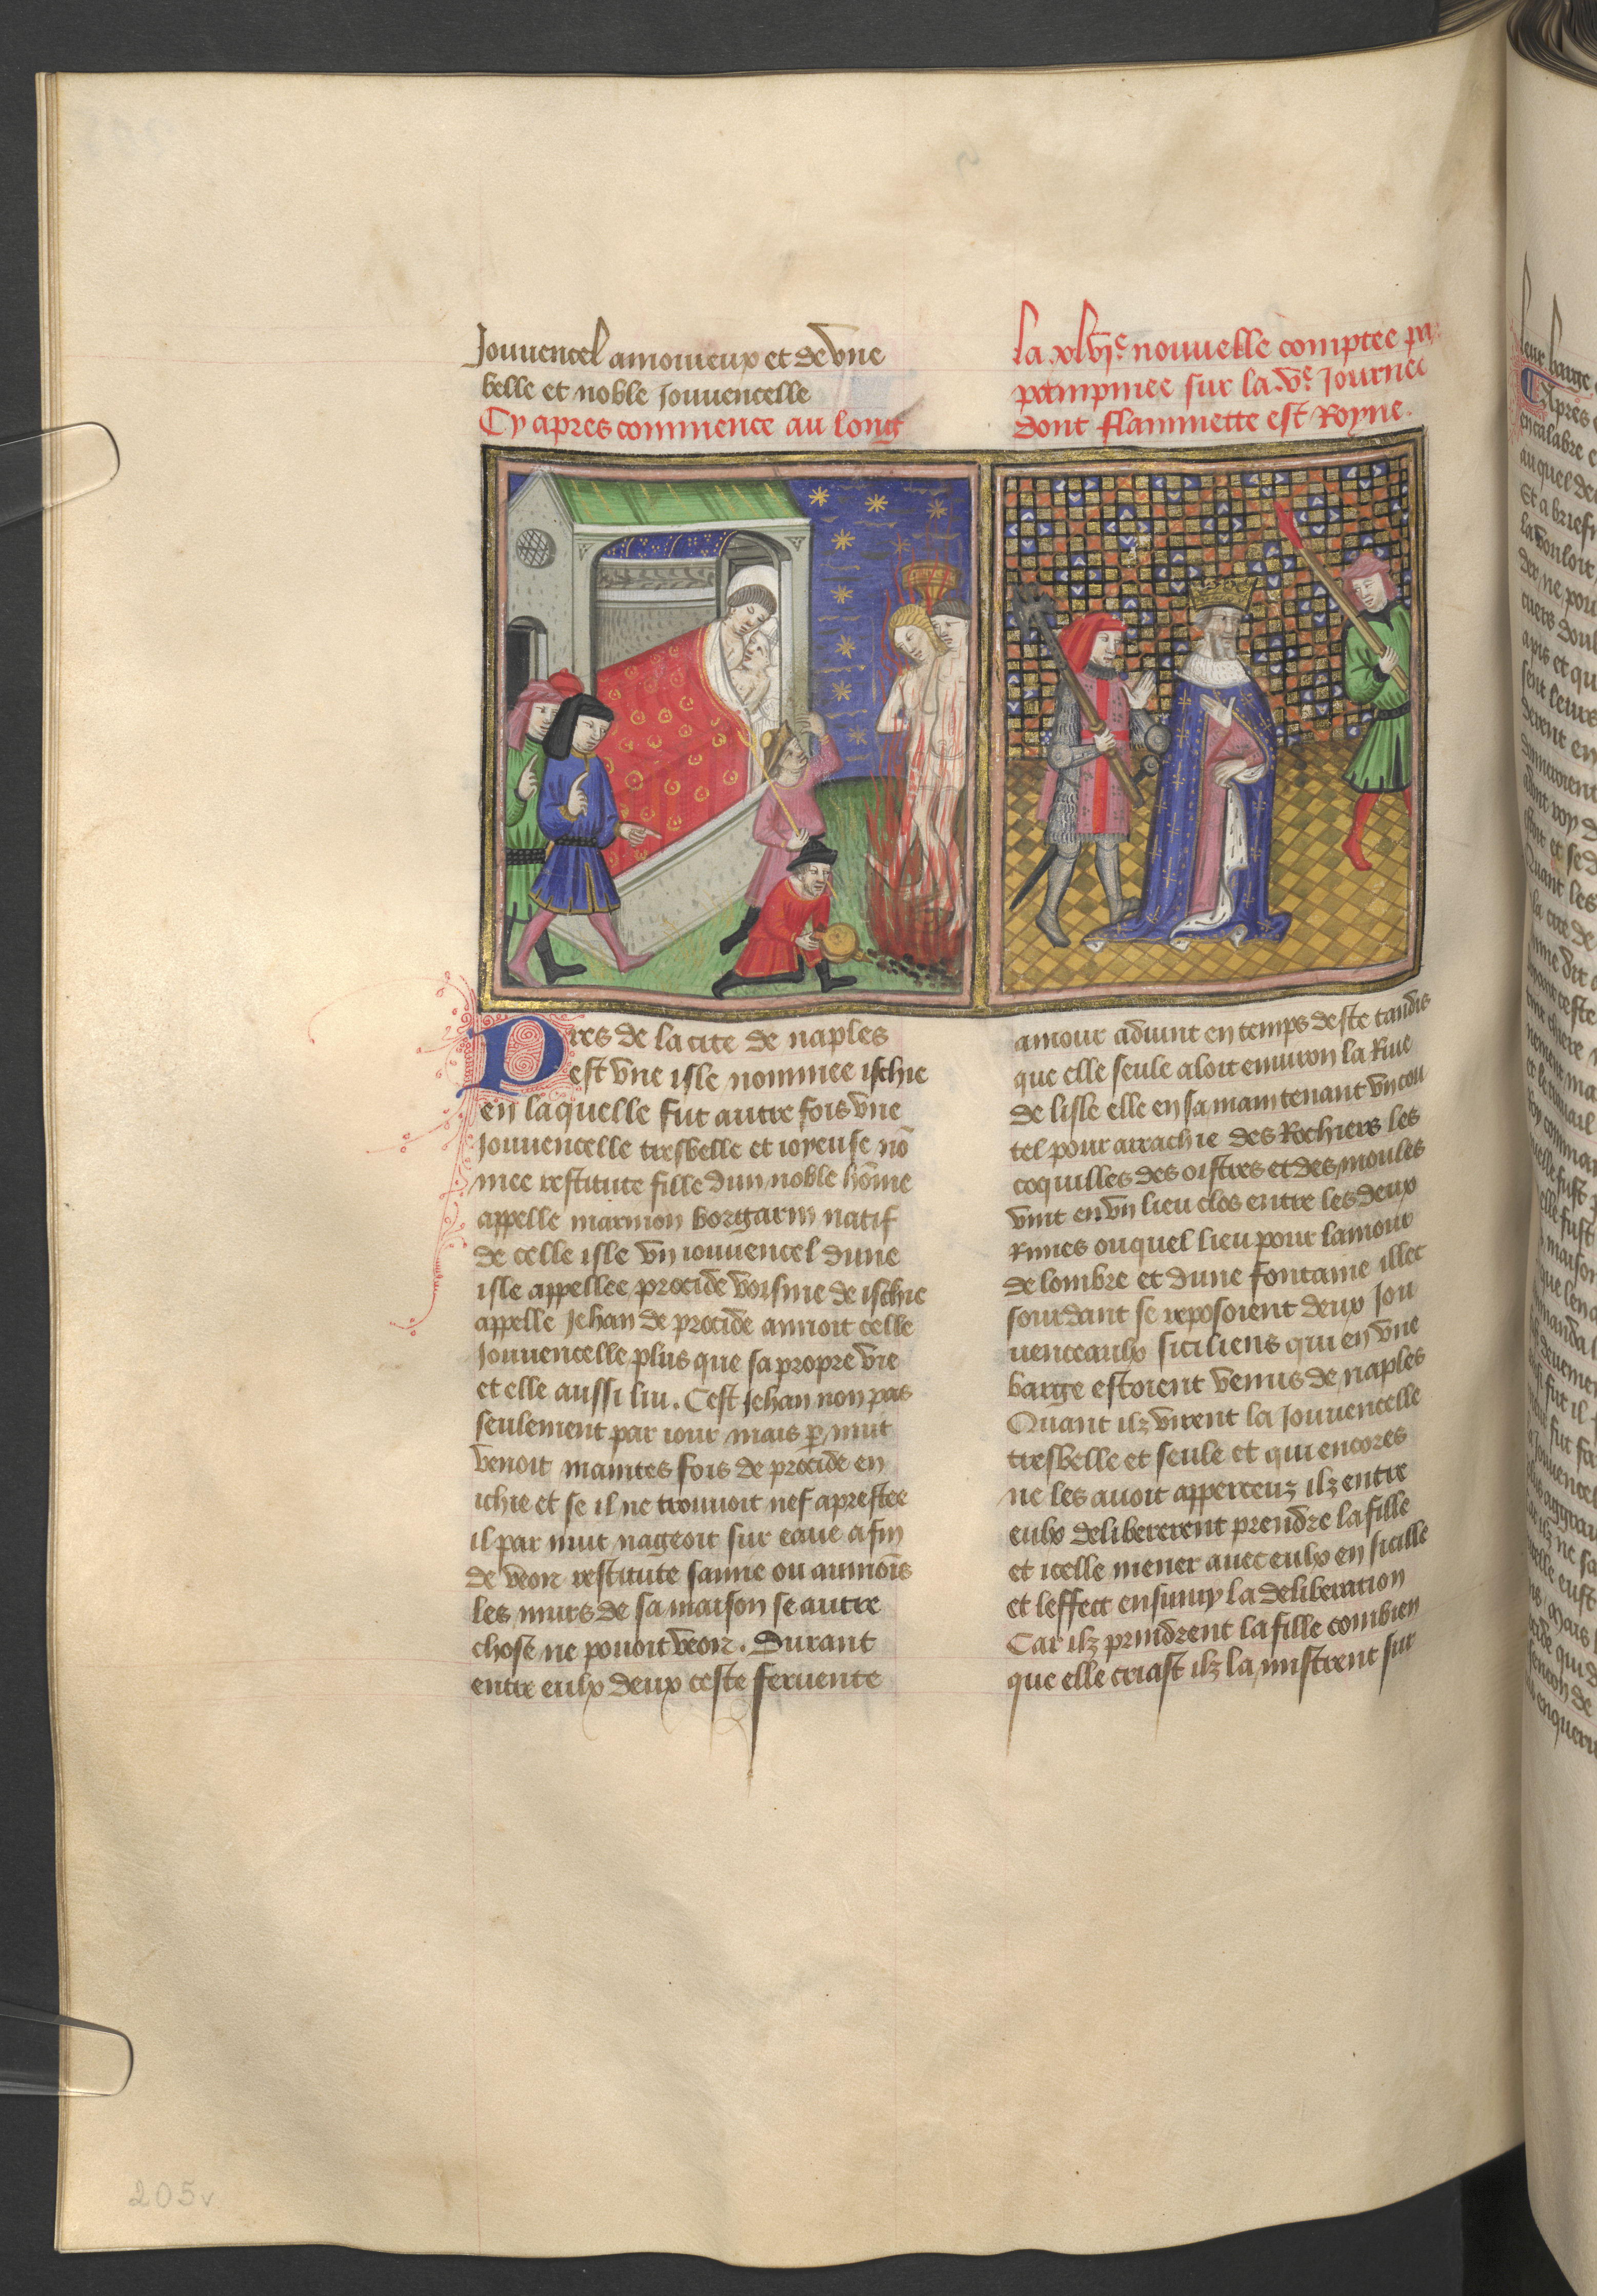 Jouuencel amoureux et de vne
belle et noble Jouuencelle
Cy apres commence au long
la xlvje nouuelle comptee par
pampinee sur la .ve. Journee
dont flammette est Royne.
Pres de la cite de naples
est vne isle nommee ischie
en laquelle fut autre fois vne
Jouuencelle tresbelle et ioyeuse nō
mee restitute fille dun noble hōme
appelle marmon borgarin natif
de celle isle vn iouuencel dune
isle appellee procide voisine de ischie
appelle Jehan de procide amoit celle
Jouuencelle plus que sa propre vie
et elle aussi luy. Cest Jehan non pas
seulement par iour mais p nuit
venoit maintes fois de procide en
ichie et se il ne trouuoit nef aprestee
il par nuit nageoit sur eaue afin
de veoir restitute saune ou aumoīs
les murs de sa maison se autre
chose ne pouoit veoir. Durant
entre eulx deux ceste feruente
amour aduint en temps deste tandis
que elle seule aloit enuiron la Riue
de lisle elle en sa main tenant vn cou
tel pour arrachie des Rochiers les
coquilles des oistres et des moules
vint en vn lieu clos entre les deux
Riues ouquel lieu pour lamour
de lombre et dune fontaine illec
sourdant se reposoient deux Jou
uenceaulx siciliens qui en vne
barge estoient venus de naples
Quant ilz virent la Jouuencelle
tresbelle et seule et qui encores
ne les auoit apperceuz ilz entre
eulx delibererent prendre la fille
et icelle mener auec eulx en sicille
et leffect ensuiuy la deliberation
Car ilz prindrent la fille combien
que elle criast ilz la mistrent sur
205v
leur barge
Apres
en calabre
auquel
Et a brief